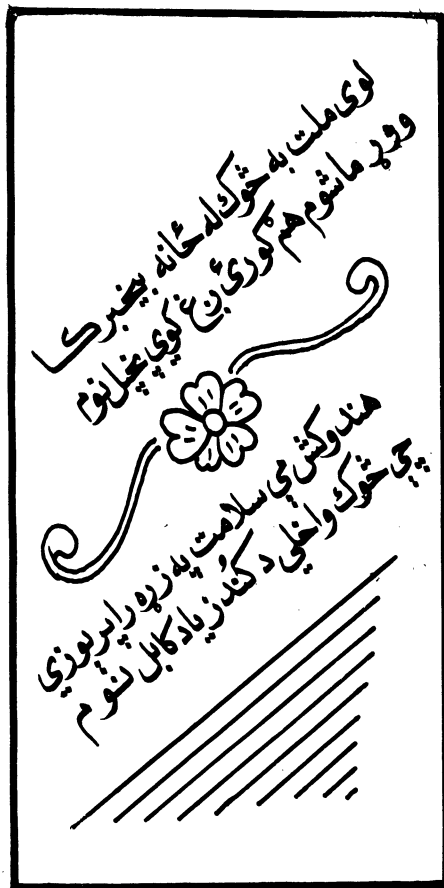 لوى ملت به څوك له ځانه بېخبر كا
ووړ ماشوم هم ګورئ ږغ كوي پخپل نوم
هندوكش مې سلامت په زړه راپرېوزي
چې څوك واخلي د كُندز يا د كابل نوم